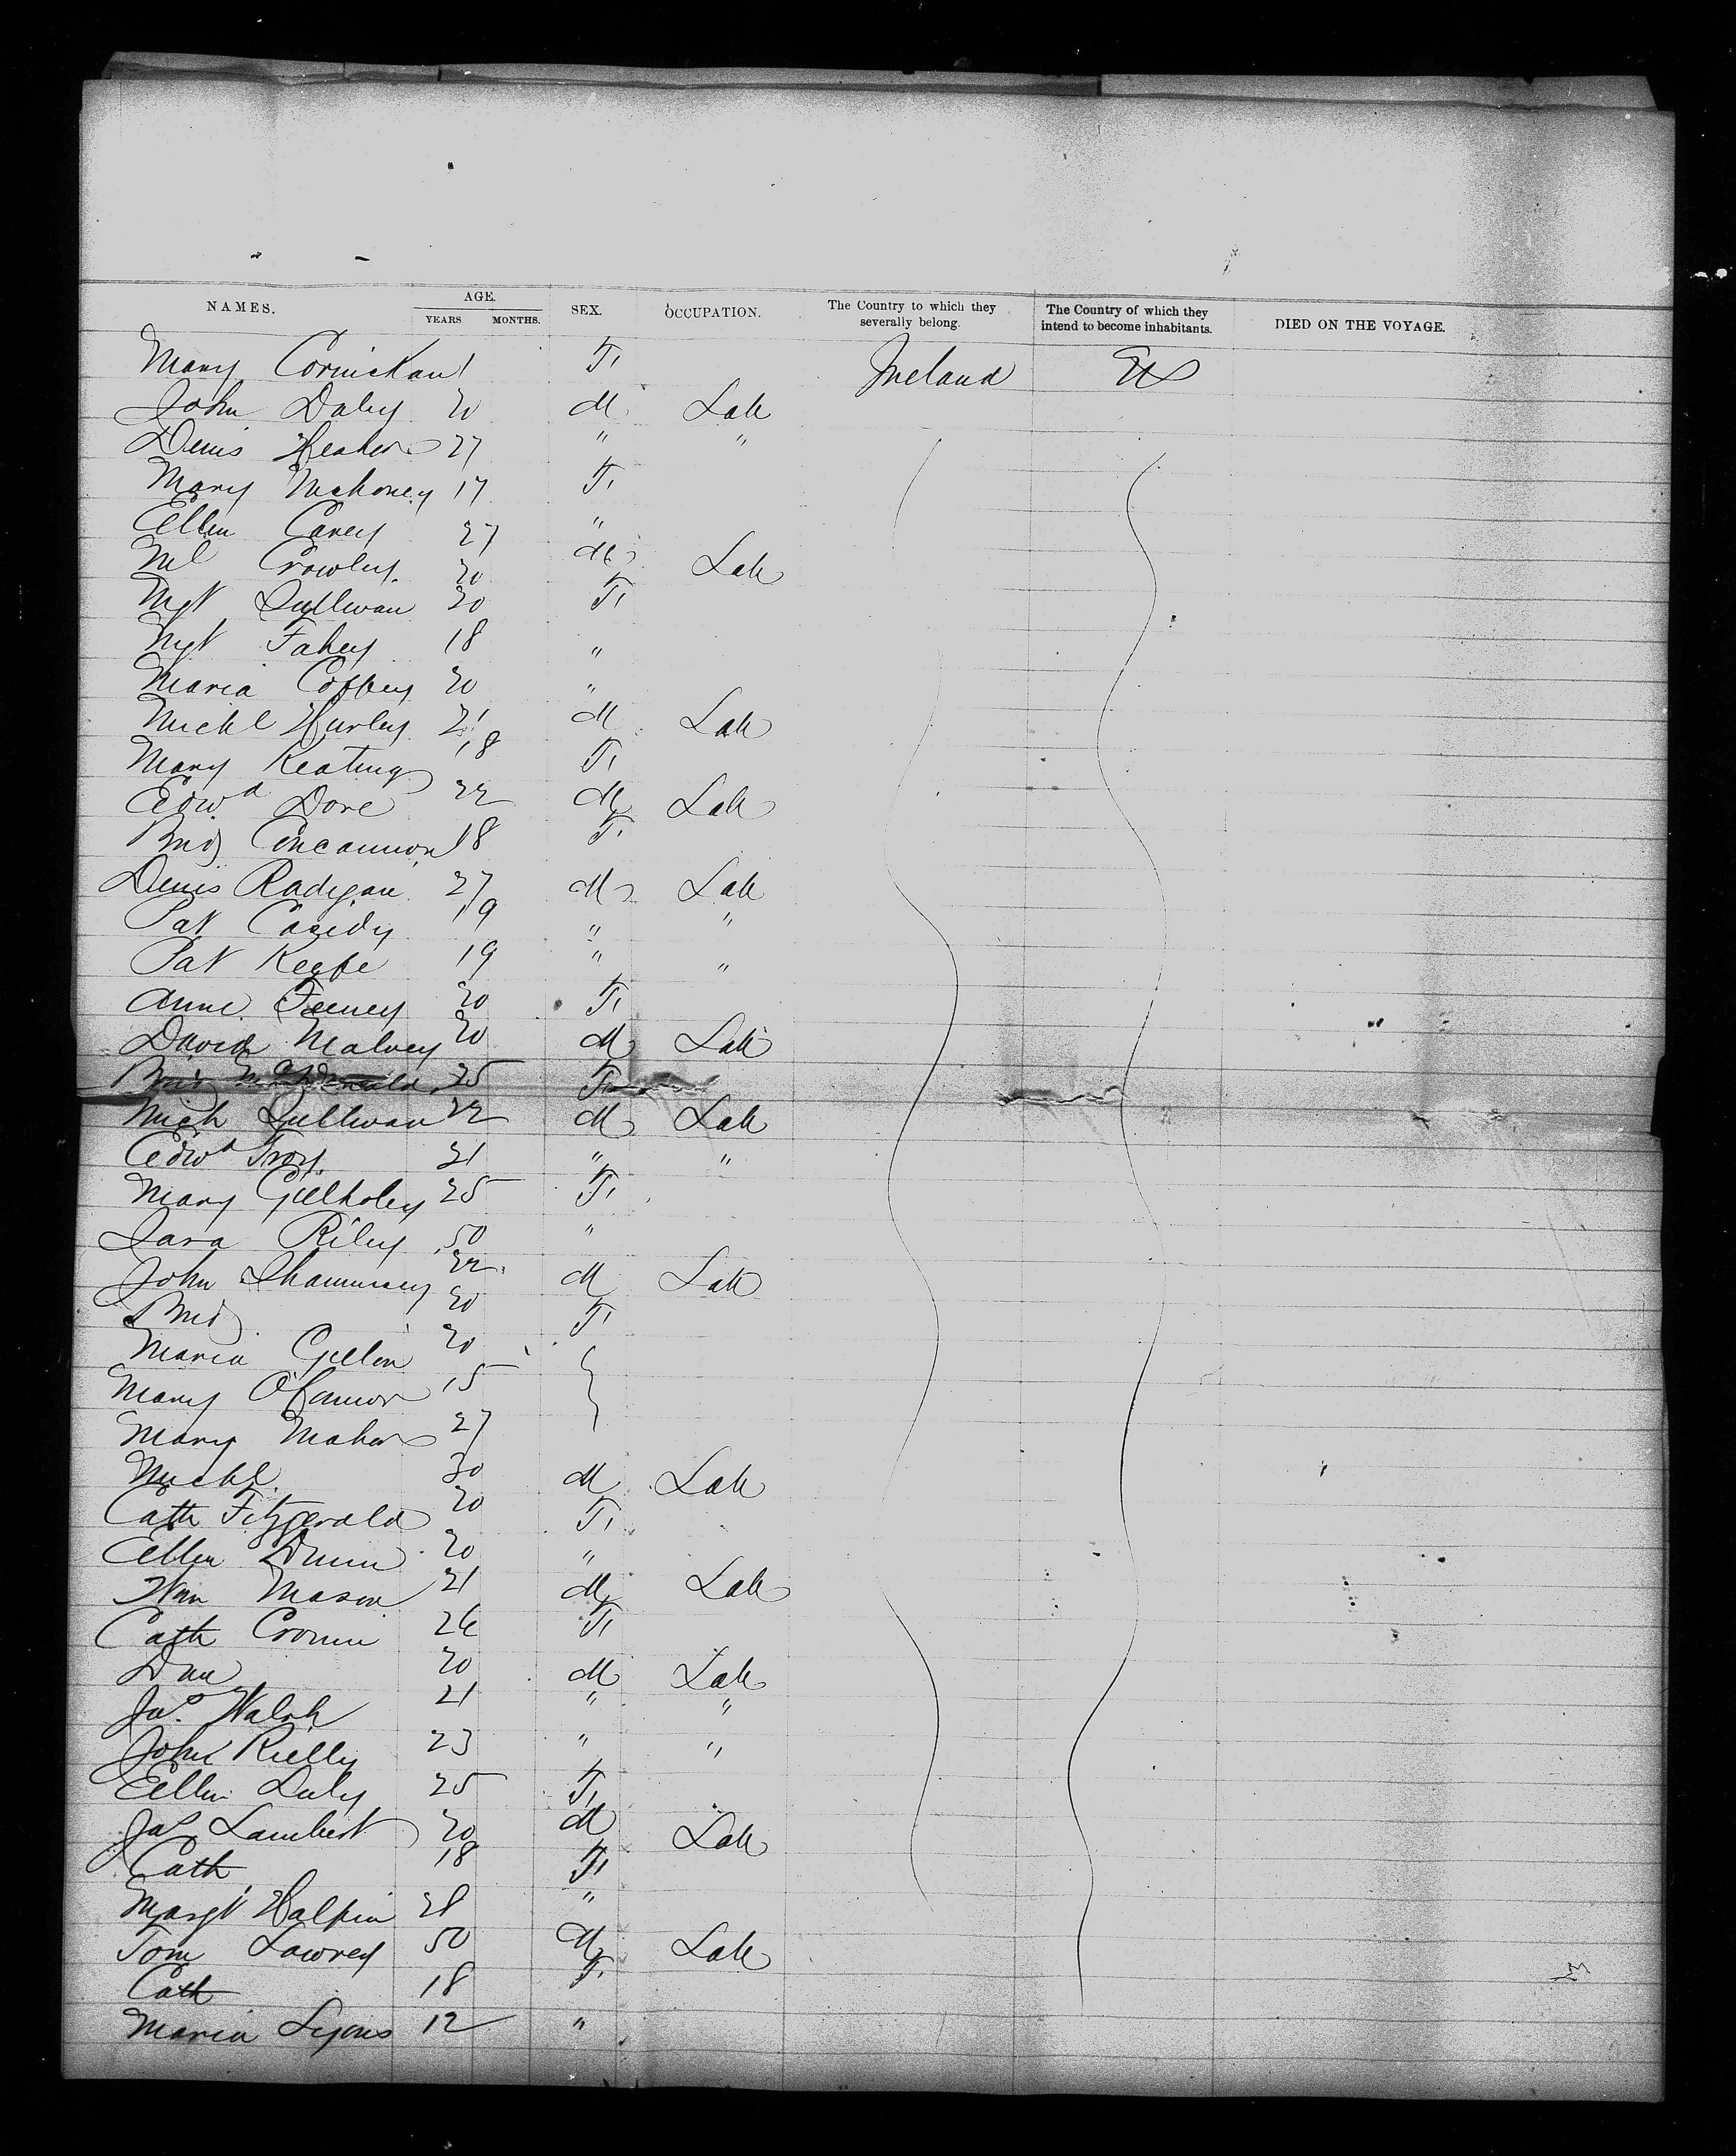 NAMES. AGE. YEARS MONTHS. SEX. OCCUPATION. The Country to which they severally belong. The Country of which they intend to become inhabitants. DIED ON THE VOYAGE.
Mary F Ireland US
John Daley 20 M Lab
Denis 27 " "
Mary Mahoney 17 F
Ellen Carey 27 "
Ml Crowley 20 M Lab
Mgt Sullivan 20 F
Mgt Fahey 18 "
Maria Coffey 20 "
Michl Hurley 21 M Lab
Mary Keating 18 F
Edwd Dore 22 M Lab
Brid Concannon 18 F
Denis Radigan 27 M Lab
Pat Casidy 19 " "
Pat Keefe 19 " "
Anne Feeney 20 F
David Malvey 20 M Lab
Brid 25 F
Mich Sullivan 22 M Lab
Edwd Troy 21 " "
Mary Gilholey 25 F
Sara Riley 50 "
John Shaunnsey 22 M Lab
Brid 20 F
Maria Gillen 20
Mary O'Connor 15
Mary Maher 27
Michl 30 M Lab
Cath Fitzgerald 20 F
Ellen Dunn 20 "
Wm Mason 21 M Lab
Cath Cronin 26 F
Dan 20 M Lab
Jno. Walsh 21 " "
John Rielly 23 " "
Ellen Daly 25 F
Jas Lambert 20 M Lab
Cath 18 F
Margt Halpin 28 "
Tom Lowrey 50 M Lab
Cath 18 F
Maria Lyons 12 "